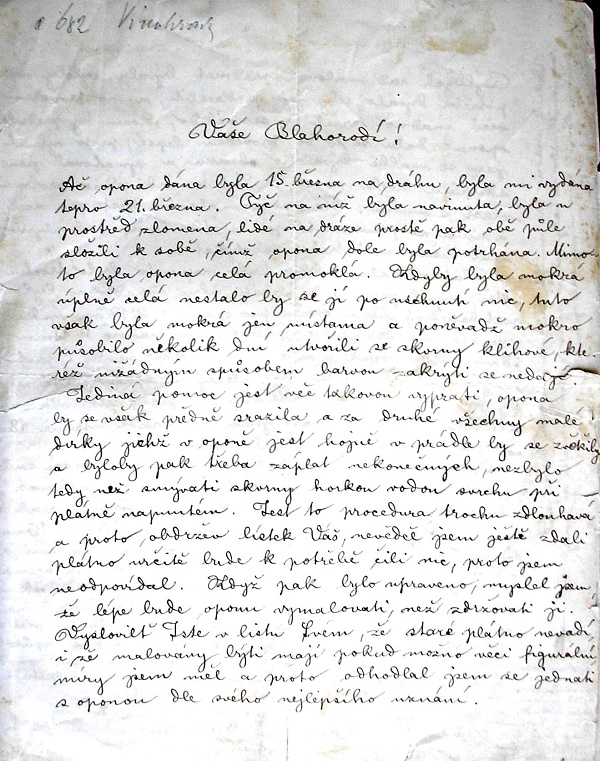 682 Vinohrady
Vaše Blahorodí!
Ač opona dána byla 15. března na dráhu, byla mi vydána
teprv 21. března. Tyč na níž byla navinuta, byla u
prostřed zlomena, lidé na dráze prostě pak obě půle
složili k sobě, čímž opona dole byla potrhána. Mimo
to byla opona celá promoklá. Kdyby byla mokrá
úplně celá nestalo by se jí po uschnutí nic, tuto
však byla mokrá jen místama a poněvadž mokro
působilo několik dní utvořili se skvrny klihové, kte-
réž nižádným spůsobem barvou zakryti se nedají.
Jediná pomoc jest věc takovou vyprati, opona
by se však předně srazila a za druhé všechny malé
dírky jichž v oponě jest hojně v prádle by se zvětšily
a byloby pak třeba záplat nekonečných, nezbylo
tedy než smývati skvrny horkou vodou svrchu při
plátně napnutém. Jest to procedura trochu zdlouhavá
a proto, obdržev lístek Váš, nevěděl jsem ještě zdali
plátno určitě bude k potřebě čili nic, proto jsem
neodpovídal. Když pak bylo upraveno, myslel jsem,
že lépe bude oponu vymalovati, než zdržovati ji.
Vyslovilť Jste v listu Svém, že staré plátno nevadí
i že malovány býti mají pokud možno věci figurální
míry jsem měl a proto odhodlal jsem se jednati
s oponou dle svého nejlepšího uznání.